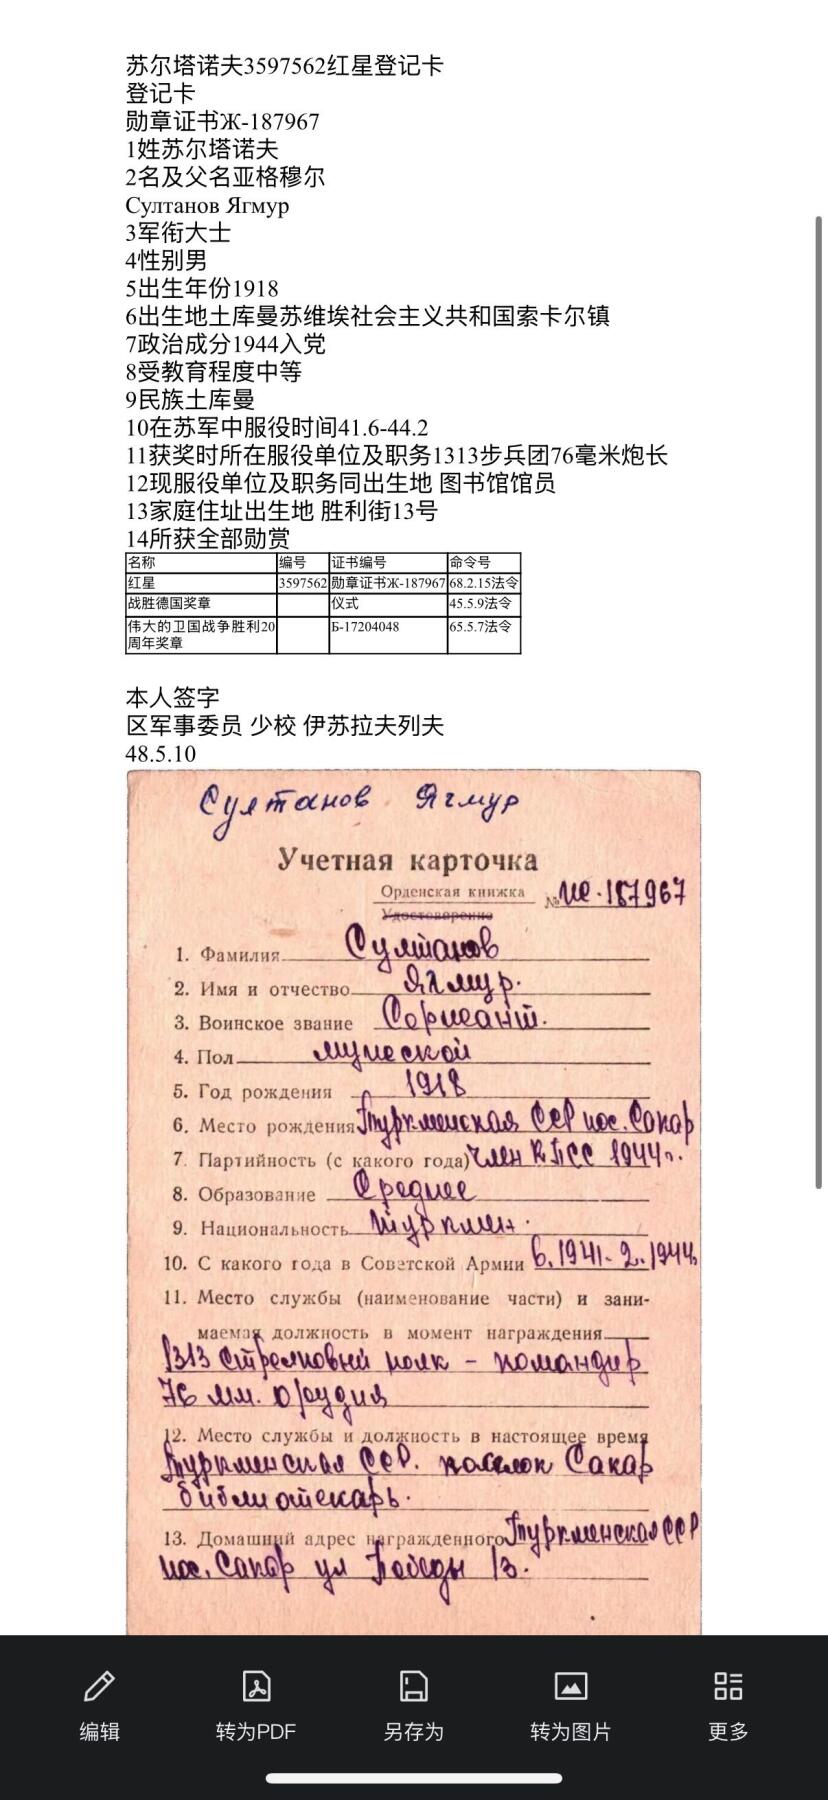 苏尔塔诺夫3597562红星登记卡
登记卡
勋章证书Ж-187967
1姓苏尔塔诺夫
2名及父名亚格穆尔
Султанов Ягмур
3军衔大士
4性别男
5出生年份1918
6出生地土库曼苏维埃社会主义共和国索卡尔镇
7政治成分1944入党
8受教育程度中等
9民族土库曼
10在苏军中服役时间41.6-44.2
11获奖时所在服役单位及职务1313步兵团76毫米炮长
12现服役单位及职务同出生地 图书馆馆员
13家庭住址出生地 胜利街13号
14所获全部勋赏
名称 编号 证书编号 命令号
红星 3597562 勋章证书Ж-187967 68.2.15法令
战胜德国奖章 仪式 45.5.9法令
伟大的卫国战争胜利20
周年奖章 Б-17204048 65.5.7法令
本人签字
区军事委员 少校 伊苏拉夫列夫
48.5.10
Султанов Ягмур
Учетная карточка
Орденская книжка
Удостоверение
№ Ж-187967
1. Фамилия Султанов
2. Имя и отчество Ягмур.
3. Воинское звание Сержант.
4. Пол мужской
5. Год рождения 1918
6. Место рождения Туркменская ССР пос. Сакар
7. Партийность (с какого года) Член КПСС 1944г.
8. Образование Среднее
9. Национальность туркмен.
10. С какого года в Советской Армии 6.1941-2.1944г
11. Место службы (наименование части) и зани-
маемая должность в момент награждения
1313 Стрелковый полк - командир
76 мм. орудия
12. Место службы и должность в настоящее время
Туркменская ССР. поселок Сакар
библиотекарь.
13. Домашний адрес награжденного Туркменская ССР
пос. Сакар ул Победы 13.
编辑 转为PDF 另存为 转为图片 更多